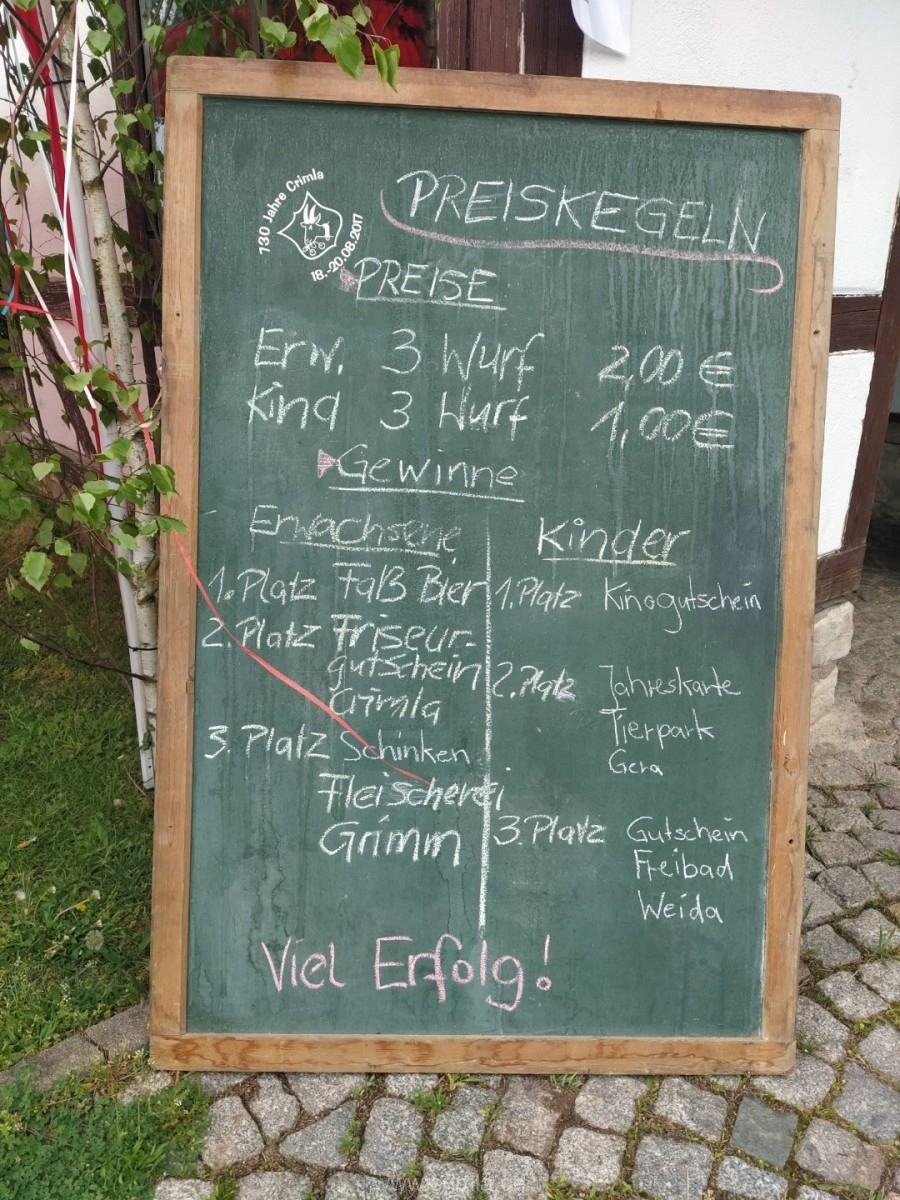 730 Jahre Crimla
18.-20.08.2017
PREISKEGELN
PREISE
Erw. 3 Wurf 2,00 €
Kind 3 Wurf 1,00€
Gewinne
Erwachsene
1. Platz Faß Bier
2. Platz Friseur-
gutschein
Crimla
3. Platz Schinken
Fleischerei
Grimm
Kinder
1. Platz Kinogutschein
2. Platz Jahreskarte
Tierpark
Gera
3. Platz Gutschein
Freibad
Weida
Viel Erfolg!